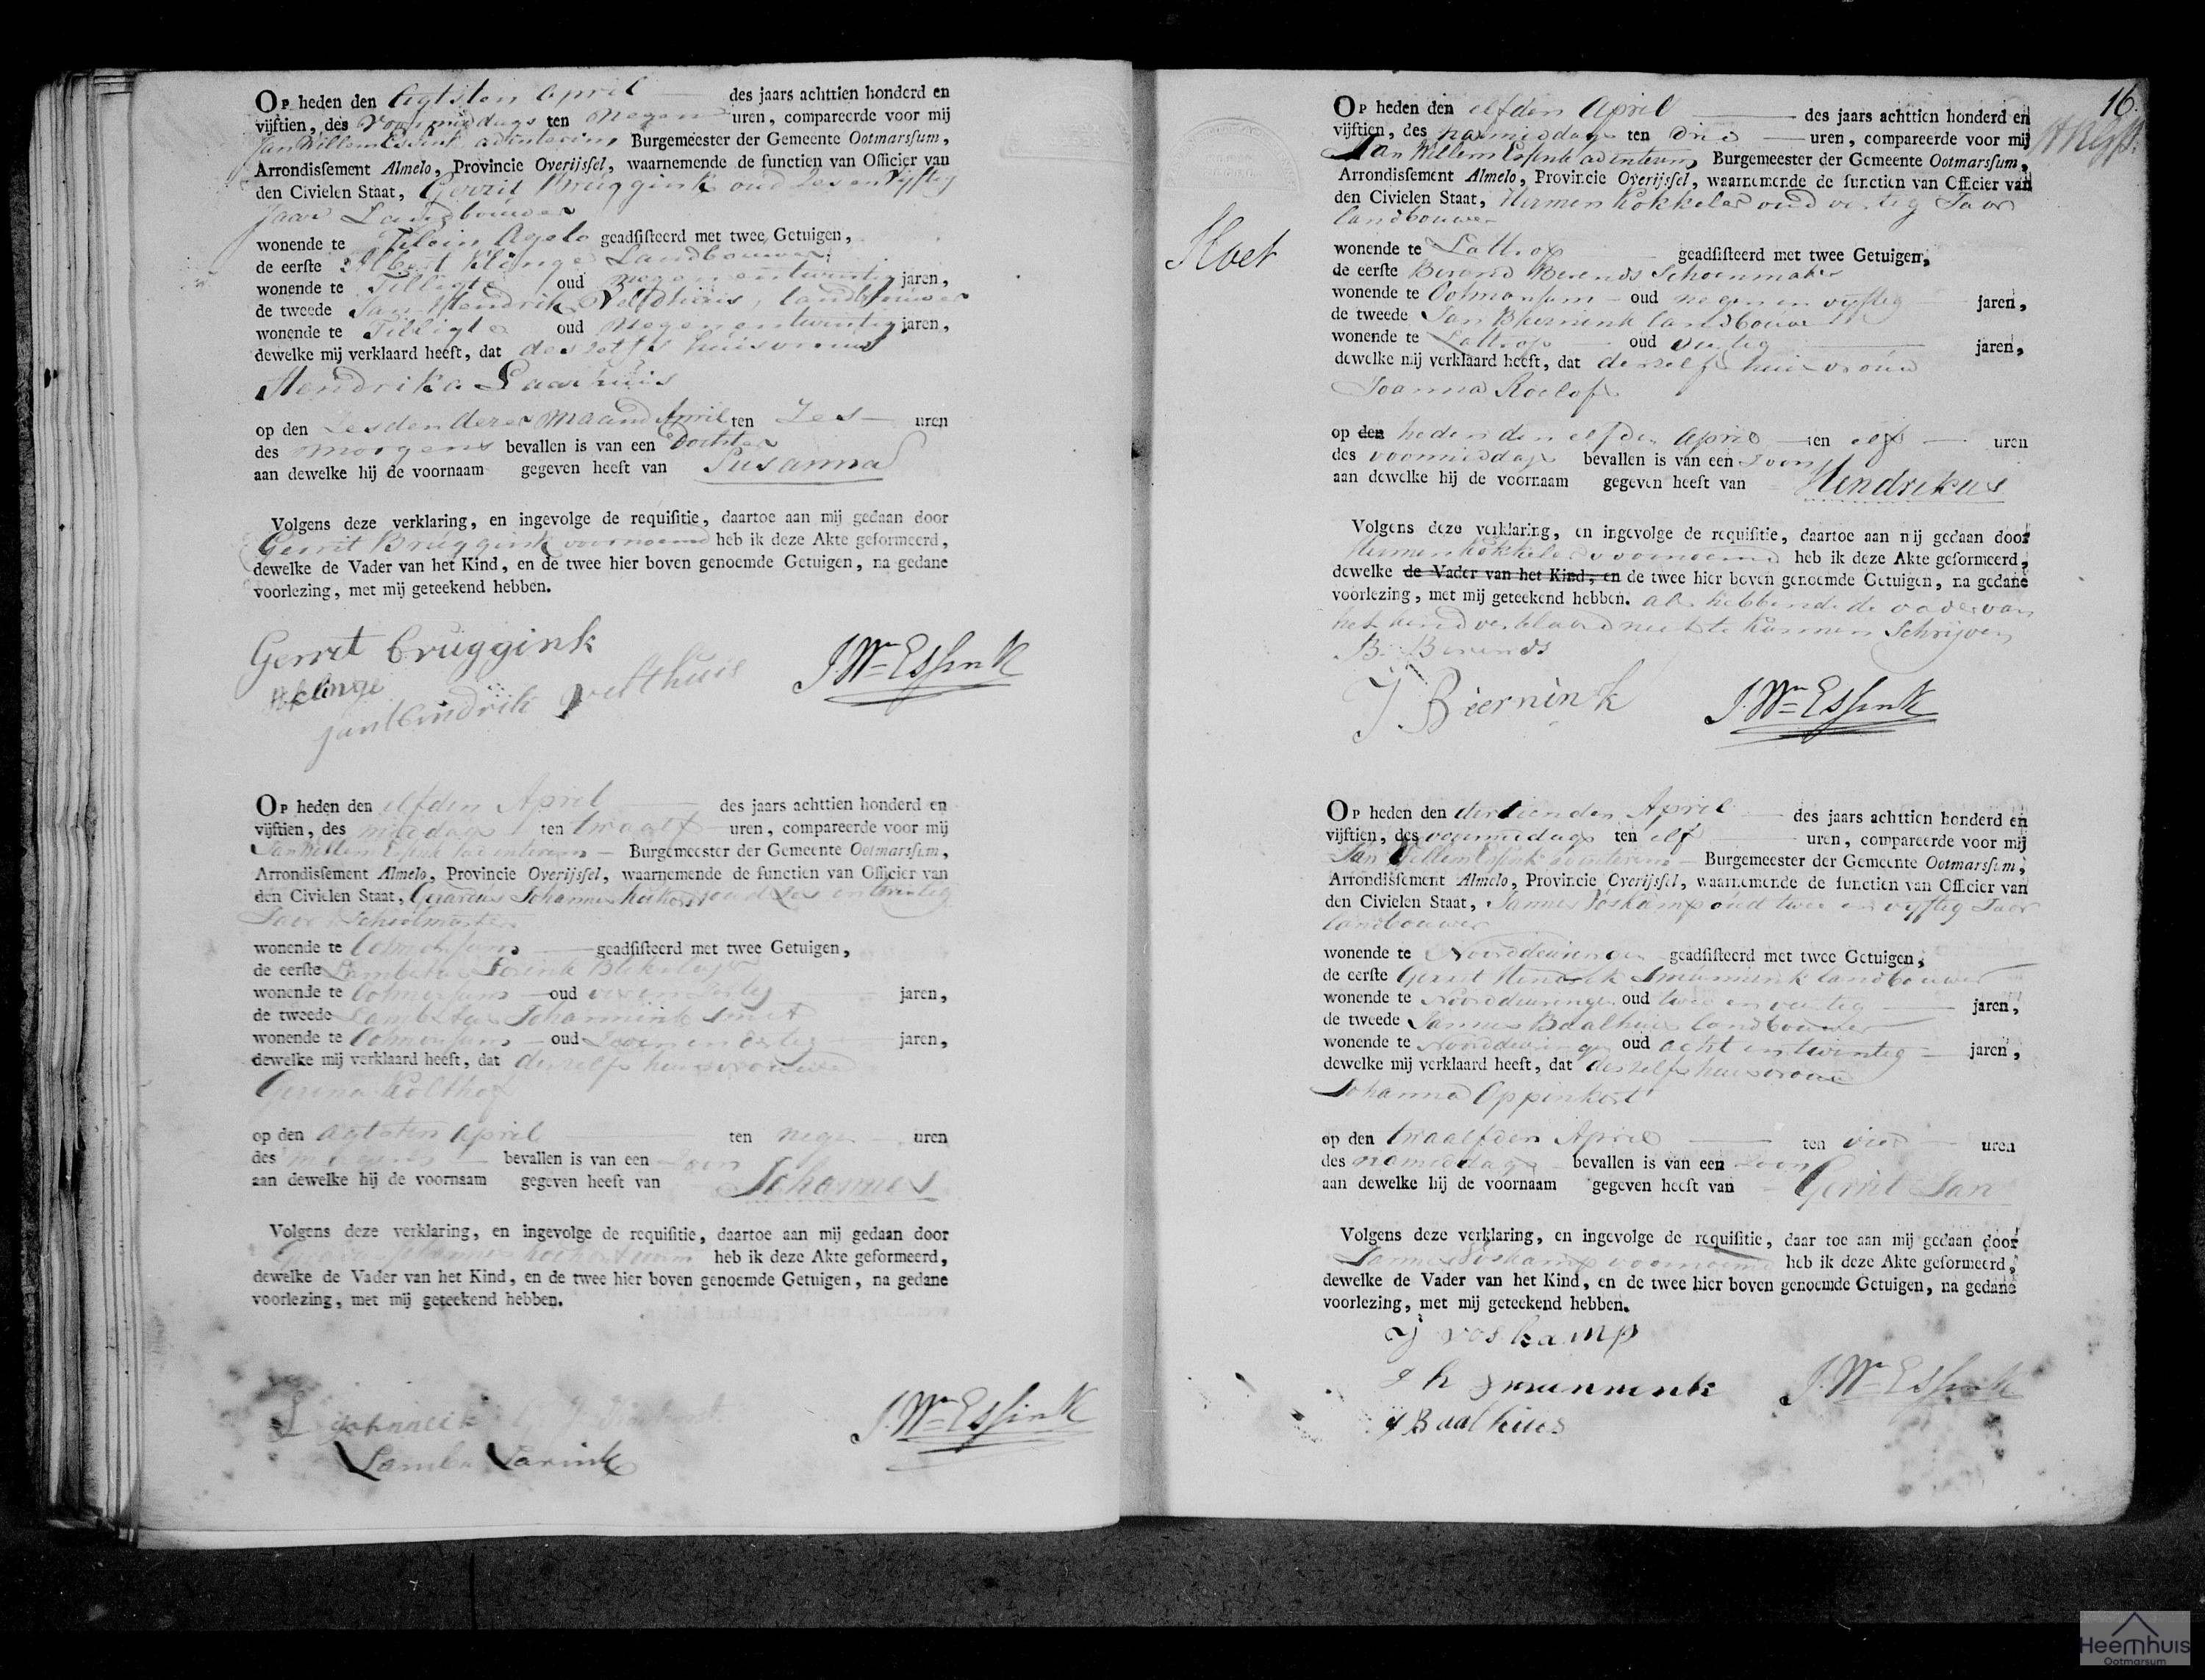 Op heden den Agtsten April des jaars achttien honderd en
vijftien, des Voormiddags ten Negen uren, compareerde voor mij
Jan Willem Essink ad interim Burgemeester der Gemeente Ootmarssum,
Arrondissement Almelo, Provincie Overijssel, waarnemende de functien van Officier van
den Civielen Staat, Gerrit Bruggink oud Zes en Vyftig
Jaar Landbouwer
wonende te Klein Agelo geadsisteerd met twee Getuigen,
de eerste Albert Klinge Landbouwer
wonende te Tilligte oud negenentwintig jaren,
de tweede Jan Hendrik Velthuis, landbouwer
wonende te Tilligte oud Negenentwintig jaren,
dewelke mij verklaard heeft, dat deszelfs huisvrouw
Hendrika Laarhuis
op den Zesden dezer maand April ten Zes uren
des morgens bevallen is van een Dochter
aan dewelke hij de voornaam gegeven heeft van Susanna
Volgens deze verklaring, en ingevolge de requisitie, daartoe aan mij gedaan door
Gerrit Bruggink voornoemd heb ik deze Akte geformeerd,
dewelke de Vader van het Kind, en de twee hier boven genoemde Getuigen, na gedane
voorlezing, met mij geteekend hebben.
Gerret Bruggink
A klinge
jan Hendrik velthuis
J. Wm Essink
Op heden den elfden April des jaars achttien honderd en
vijftien, des middags ten twaalf uren, compareerde voor mij
Jan Willem Essink ad interim Burgemeester der Gemeente Ootmarssum,
Arrondissement Almelo, Provincie Overijssel, waarnemende de functien van Officier van
den Civielen Staat, Gerardus Johannes oud zes en twintig
Jaar Schoolmaster
wonende te Ootmarsum geadsisteerd met twee Getuigen,
de eerste Lambertus
wonende te Ootmarsum oud jaren,
de tweede Lambertus smit
wonende te Ootmarsum oud Zeven en dertig jaren,
dewelke mij verklaard heeft, dat deszelfs huisvrouwe
Gerina Kolthof
op den agtsten April ten negen uren
des morgens bevallen is van een Zoon
aan dewelke hij de voornaam gegeven heeft van Johannes
Volgens deze verklaring, en ingevolge de requisitie, daartoe aan mij gedaan door
heb ik deze Akte geformeerd,
dewelke de Vader van het Kind, en de twee hier boven genoemde Getuigen, na gedane
voorlezing, met mij geteekend hebben.
J. Wm Essink
16
Op heden den elfden April des jaars achttien honderd en
vijftien, des namiddags ten Drie uren, compareerde voor mij
Jan Willem Essink ad interim Burgemeester der Gemeente Ootmarssum,
Arrondissement Almelo, Provincie Overijssel, waarnemende de functien van Officier van
den Civielen Staat, Hermen Kokkeler oud veertig Jaar
landbouwer
wonende te Lattrop geadsisteerd met twee Getuigen,
de eerste Berend Berends Schoenmaker
wonende te Ootmarsum oud negen en vyftig jaren,
de tweede Jan Biernink landbouwer
wonende te Lattrop oud veertig jaren,
dewelke mij verklaard heeft, dat derzelfs huisvrouw
Joanna Roelofs
op den heden den elfden April ten elf uren
des voormiddags bevallen is van een Zoon
aan dewelke hij de voornaam gegeven heeft van Hendrikus
Volgens deze verklaring, en ingevolge de requisitie, daartoe aan mij gedaan door
Hermen Kokkeler voornoemd heb ik deze Akte geformeerd,
dewelke de Vader van het Kind, en de twee hier boven genoemde Getuigen, na gedane
voorlezing, met mij geteekend hebben. als hebbende de vader van
het kind verklaard niet te kunnen Schryven
B. Berends
J Biernink
J. Wm Essink
Op heden den dertienden April des jaars achttien honderd en
vijftien, des voormiddags ten elf uren, compareerde voor mij
Jan Willem Essink ad interim Burgemeester der Gemeente Ootmarssum,
Arrondissement Almelo, Provincie Overijssel, waarnemende de functien van Officier van
den Civielen Staat, Jannes Voskamp oud twee en vyftig Jaar
landbouwer
wonende te Noorddeuringen geadsisteerd met twee Getuigen,
de eerste Gerrit Hendrik landbouwer
wonende te Noorddeuringen oud twee en veertig jaren,
de tweede Jannes Baalhuis landbouwer
wonende te Noorddeuringen oud acht en twintig jaren,
dewelke mij verklaard heeft, dat deszelfs huisvrouw
Johanna Oppinkort
op den twaalfden April ten vier uren
des namiddags bevallen is van een Zoon
aan dewelke hij de voornaam gegeven heeft van Gerrit Jan
Volgens deze verklaring, en ingevolge de requisitie, daar toe aan mij gedaan door
Jannes Voskamp voornoemd heb ik deze Akte geformeerd,
dewelke de Vader van het Kind, en de twee hier boven genoemde Getuigen, na gedane
voorlezing, met mij geteekend hebben.
J voskamp
J Baalhues
J. Wm Essink
Heemhuis
Ootmarsum